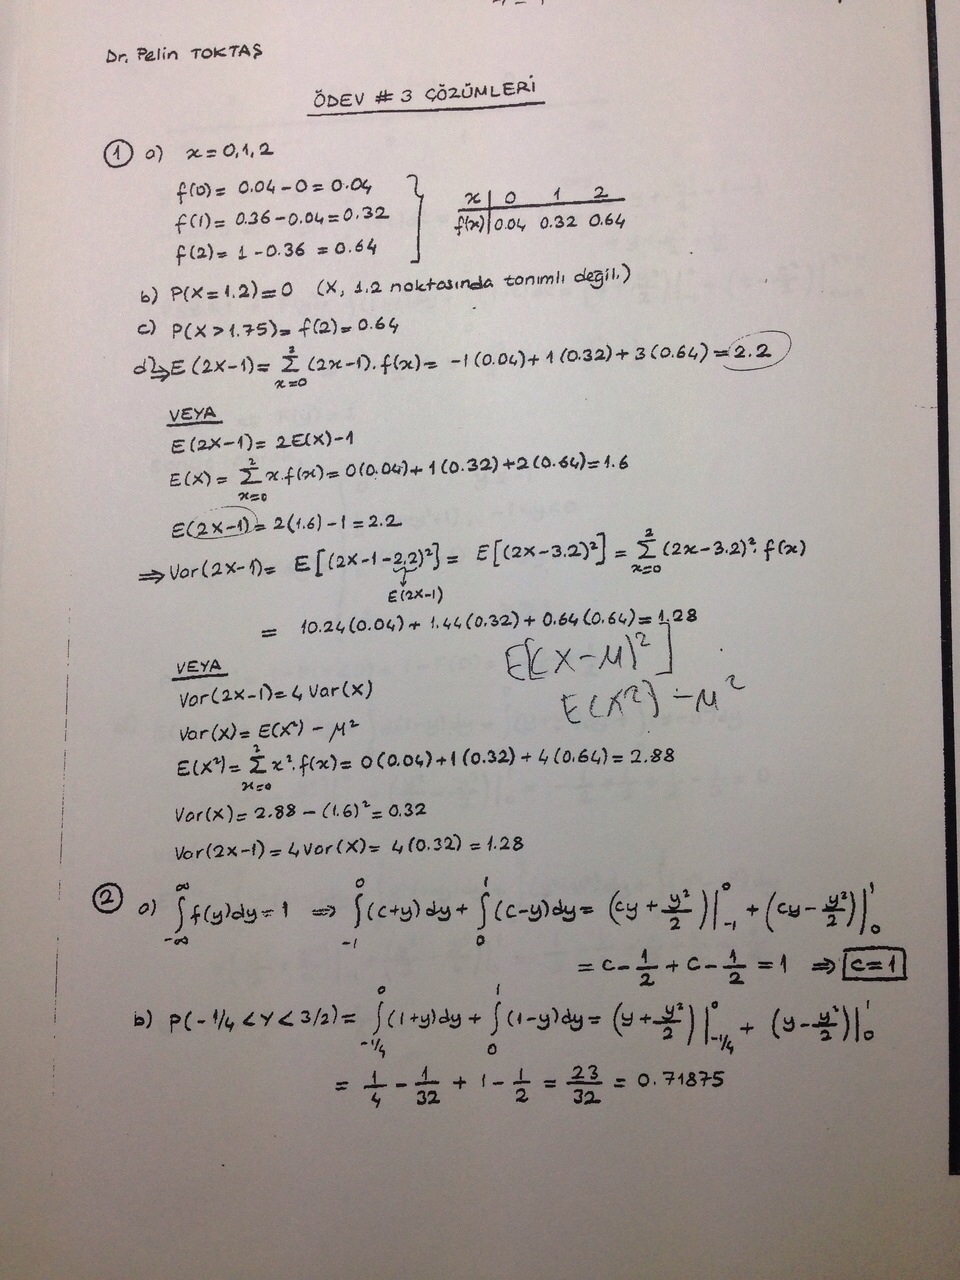 Dr. Pelin TOKTAŞ
ÖDEV # 3 ÇÖZÜMLERİ
① a) x = 0,1,2
f(0) = 0.04 - 0 = 0.04
f(1) = 0.36 - 0.04 = 0.32
f(2) = 1 - 0.36 = 0.64
x | 0 1 2
f(x) | 0.04 0.32 0.64
b) P(X = 1.2) = 0 (X, 1.2 noktasında tanımlı değil.)
c) P(X > 1.75) = f(2) = 0.64
d) ⇒ E(2X-1) = Σ_{x=0}^{2} (2x-1).f(x) = -1(0.04) + 1(0.32) + 3(0.64) = 2.2
VEYA
E(2X-1) = 2E(X) - 1
E(X) = Σ_{x=0}^{2} x.f(x) = 0(0.04) + 1(0.32) + 2(0.64) = 1.6
E(2X-1) = 2(1.6) - 1 = 2.2
⇒ Var(2X-1) = E[(2X-1-2.2)²] = E[(2X-3.2)²] = Σ_{x=0}^{2} (2x-3.2)².f(x)
E(2X-1)
= 10.24(0.04) + 1.44(0.32) + 0.64(0.64) = 1.28
E[(X-μ)²]
E(X²) - μ²
VEYA
Var(2X-1) = 4 Var(X)
Var(X) = E(X²) - μ²
E(X²) = Σ_{x=0}^{2} x².f(x) = 0(0.04) + 1(0.32) + 4(0.64) = 2.88
Var(X) = 2.88 - (1.6)² = 0.32
Var(2X-1) = 4Var(X) = 4(0.32) = 1.28
② a) ∫_{-∞}^{∞} f(y)dy = 1 ⇒ ∫_{-1}^{0} (c+y)dy + ∫_{0}^{1} (c-y)dy = (cy + y²/2)|_{-1}^{0} + (cy - y²/2)|_{0}^{1}
= c - 1/2 + c - 1/2 = 1 ⇒ c = 1
b) P(-1/4 < Y < 3/2) = ∫_{-1/4}^{0} (1+y)dy + ∫_{0}^{1} (1-y)dy = (y + y²/2)|_{-1/4}^{0} + (y - y²/2)|_{0}^{1}
= 1/4 - 1/32 + 1 - 1/2 = 23/32 = 0.71875